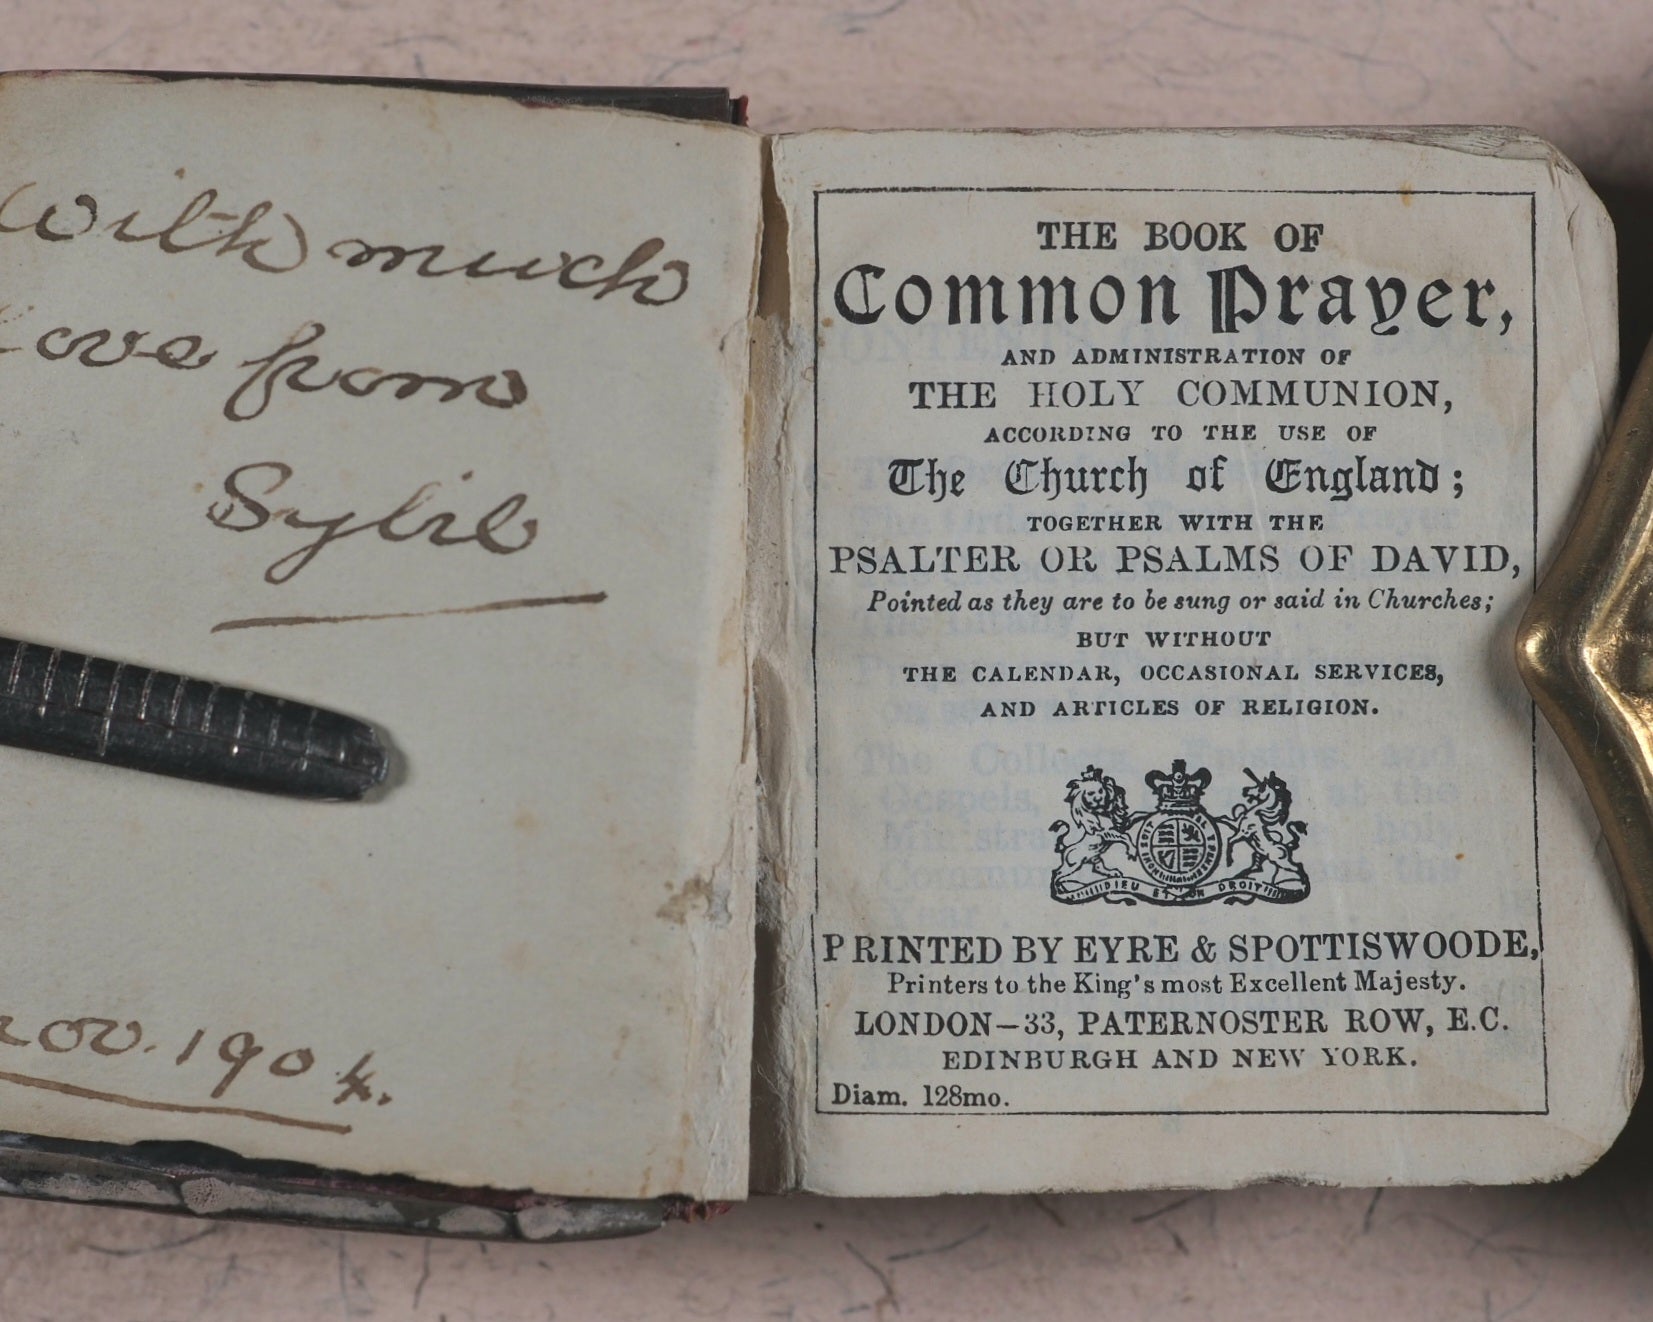 with much
love from
Sybil
Nov. 1904.
THE BOOK OF
Common Prayer,
AND ADMINISTRATION OF
THE HOLY COMMUNION,
ACCORDING TO THE USE OF
The Church of England;
TOGETHER WITH THE
PSALTER OR PSALMS OF DAVID,
Pointed as they are to be sung or said in Churches;
BUT WITHOUT
THE CALENDAR, OCCASIONAL SERVICES,
AND ARTICLES OF RELIGION.
DIEU ET MON DROIT
PRINTED BY EYRE & SPOTTISWOODE,
Printers to the King's most Excellent Majesty.
LONDON—33, PATERNOSTER ROW, E.C.
EDINBURGH AND NEW YORK.
Diam. 128mo.